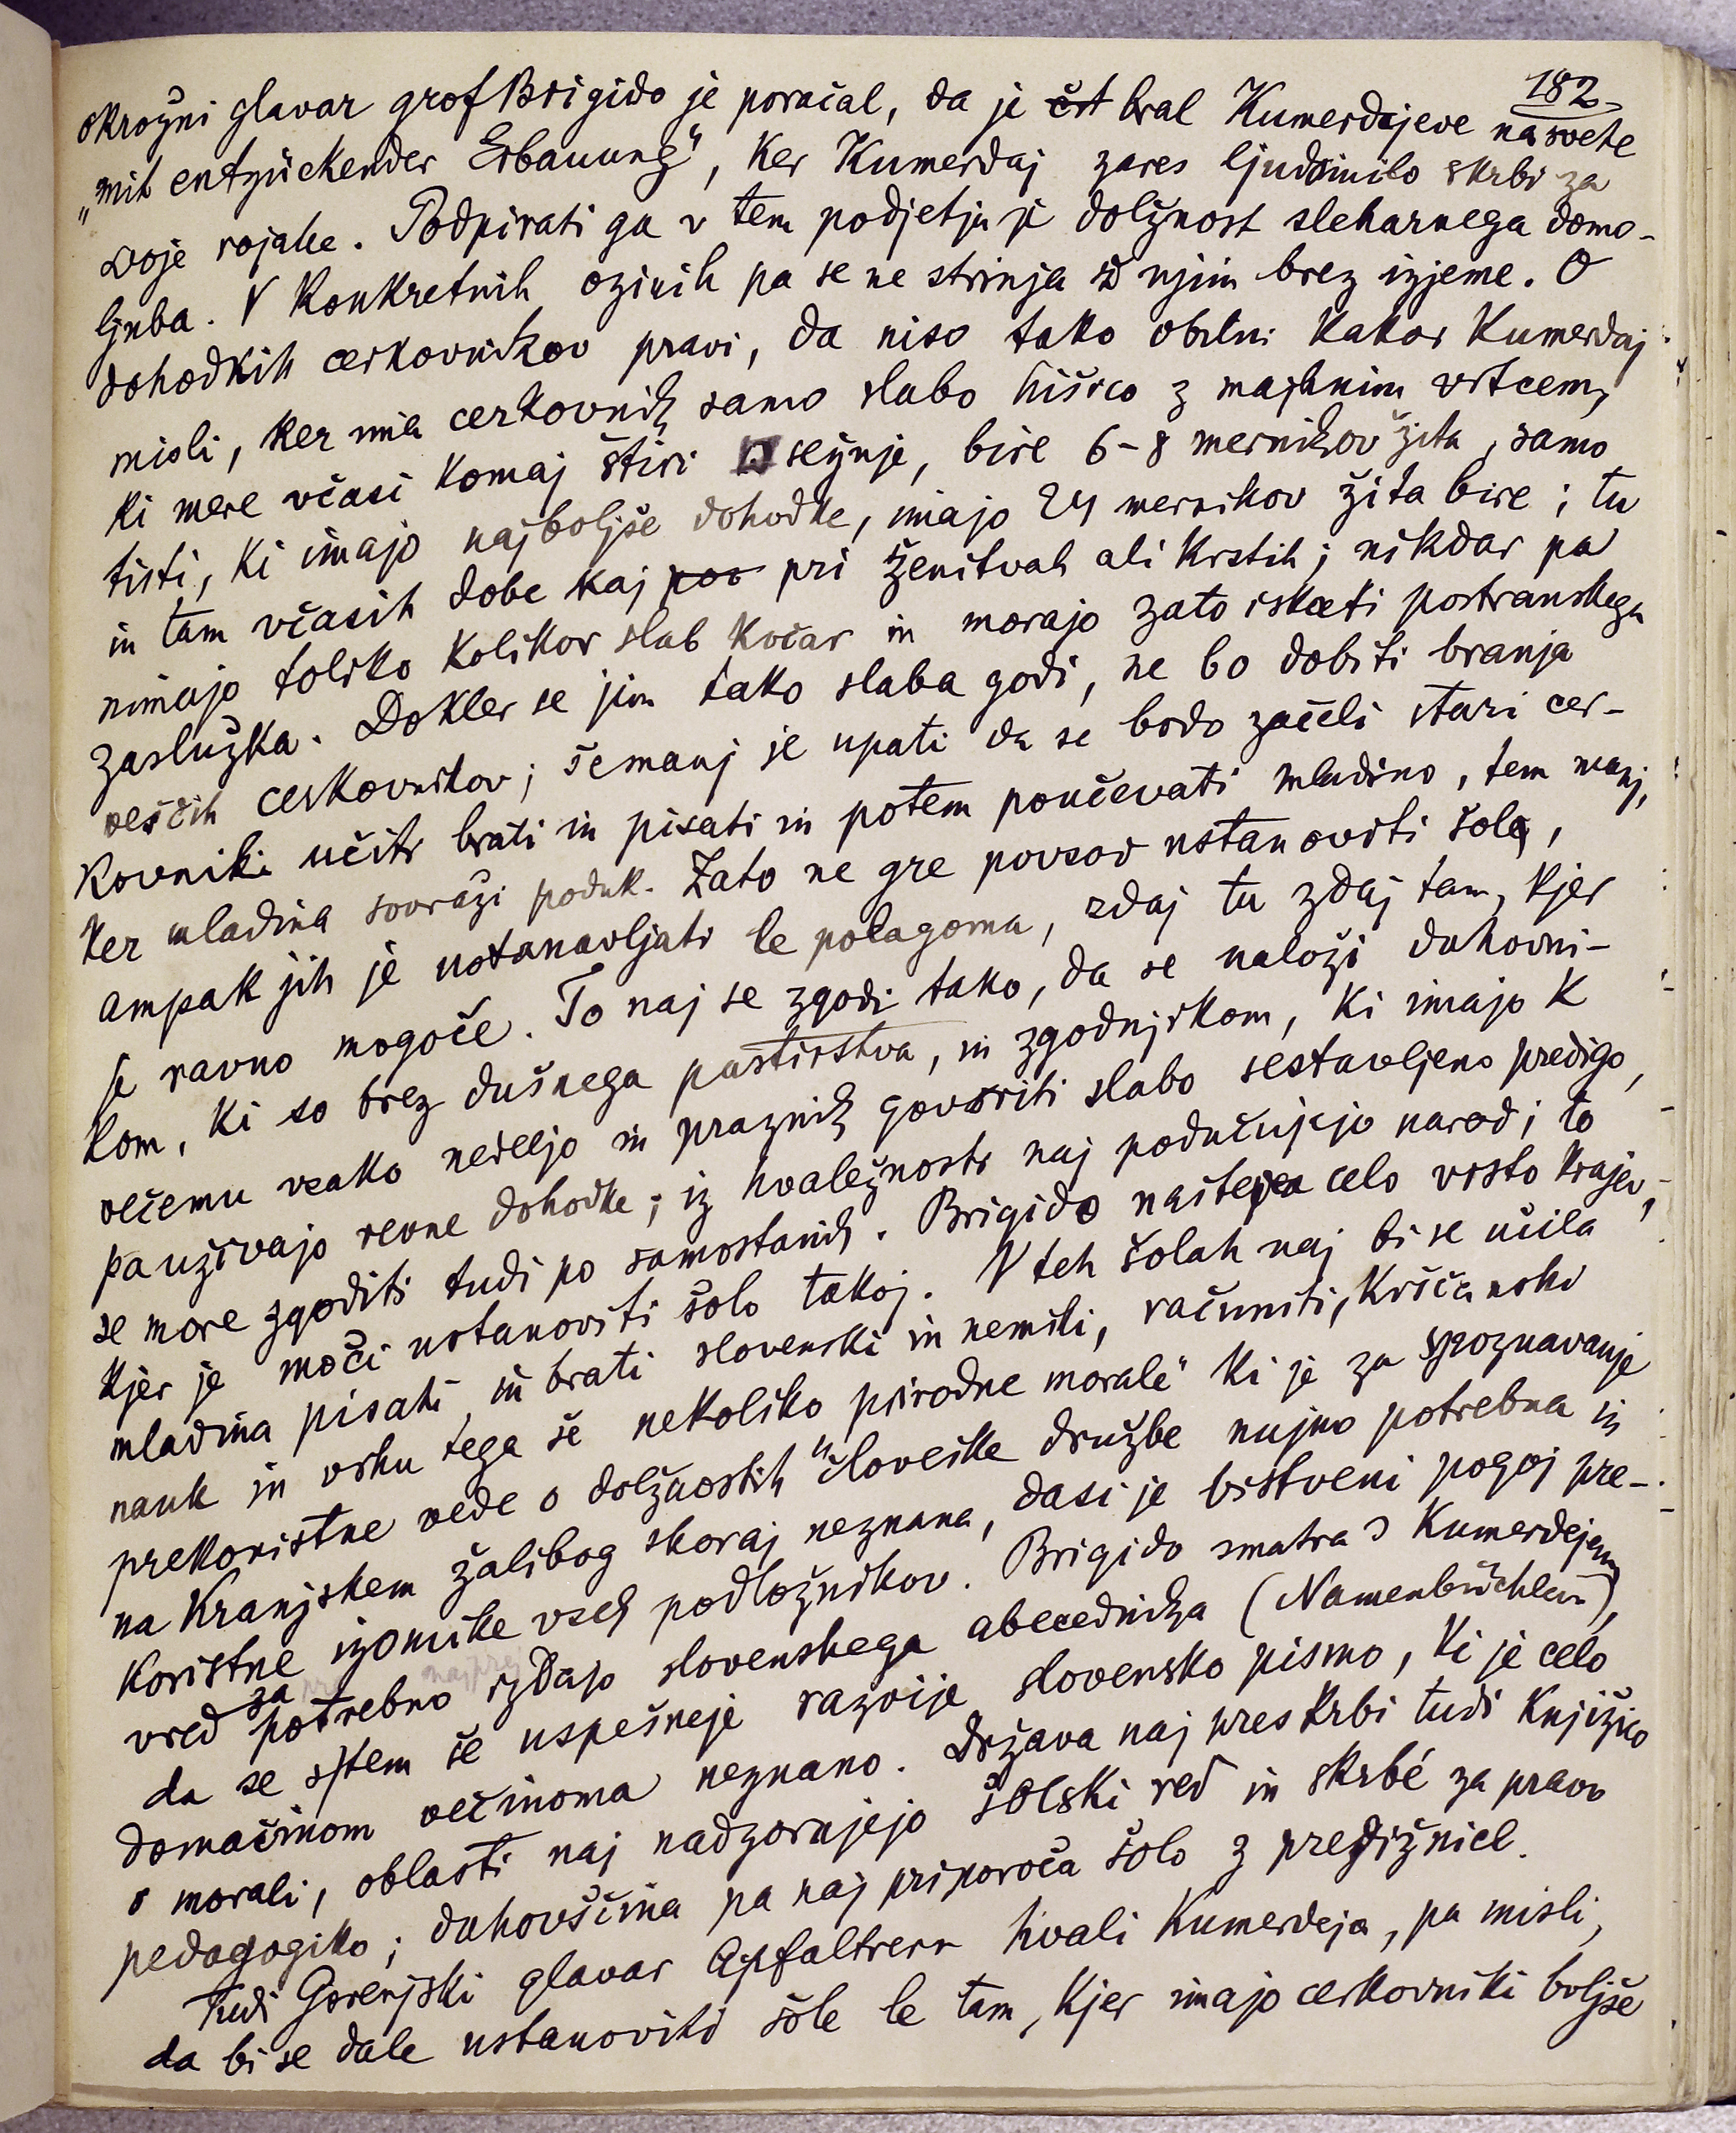 182
okrožni glavar grof Brigido je poročal, da je čit bral Kumerdejeve nasvete
„mit entzückender Erbauung", ker Kumerdaj zares ljudomilo skrbi za
svoje rojake. Podpirati ga v tem podjetju je dolžnost sleharnega domo-
ljuba. V konkretnih ozirih pa se ne strinja ž njim brez izjeme. O
dohodkih cerkovnikov pravi, da niso tako obilni kakor Kumerdaj
misli, ker ima cerkovnik samo slabo hišico z majhnim vrtcem,
ki mere včasi komaj štiri □ sežnje, bire 6-8 mernikov žita, samo
tisti, ki imajo najboljše dohodke, imajo 24 mernikov žita bire; tu
in tam včasih dobe kaj por pri ženitvah ali krstih; nikdar pa
nimajo toliko kolikor slab kočar in morajo zato iskati postranskega
zaslužka. Dokler se jim tako slaba godi, ne bo dobiti branja
veščih cerkovnikov; šemanj je upati da se bodo začeli stari cer-
kovniki učiti brati in pisati in potem poučevati mladino, tem manj,
ker mladina sovraži poduk. Zato ne gre povsod ustanoviti šole,
ampak jih je ustanavljati le polagoma, zdaj tu zdaj tam, kjer
je ravno mogoče. To naj se zgodi tako, da se naloži duhovni-
kom, ki so brez dušnega pastirstva, in zgodnjikom, ki imajo k
večemu vsako nedeljo in praznik govoriti slabo sestavljeno predigo,
pa uživajo revne dohodke; iz hvaležnosti naj podučujejo narod; to
se more zgoditi tudi po samostanih. Brigido našteje celo vrsto krajev,
kjer je moči ustanoviti šolo takoj. V teh šolah naj bi se učila
mladina pisati in brati slovenski in nemški, računiti, krščanski
nauk in vrhu tega še nekoliko prirodne morale" ki je za spoznavanje
prekoristne vede o dolžnostih "človeške družbe nujno potrebna in
na Kranjskem žalibog skoraj neznana, dasi je bistveni pogoj pre-
koristne izomike vseh podložnikov. Brigido smatra s Kumerdejem
vred za potrebno izdajo slovenskega abecednika (Namenbüchlein),
da se s tem še uspešneje razvije slovensko pismo, ki je celo
domačinom večinoma neznano. Država naj preskrbi tudi knjižico
o morali, oblasti naj nadzorujejo šolski red in skrbé za pravo
pedagogiko; duhovščina pa naj priporoča šolo z predižnice.
Tudi Gorenjski glavar Apfaltrern hvali Kumerdeja, pa misli,
da bi se dale ustanoviti šole le tam, kjer imajo cerkovniki boljše